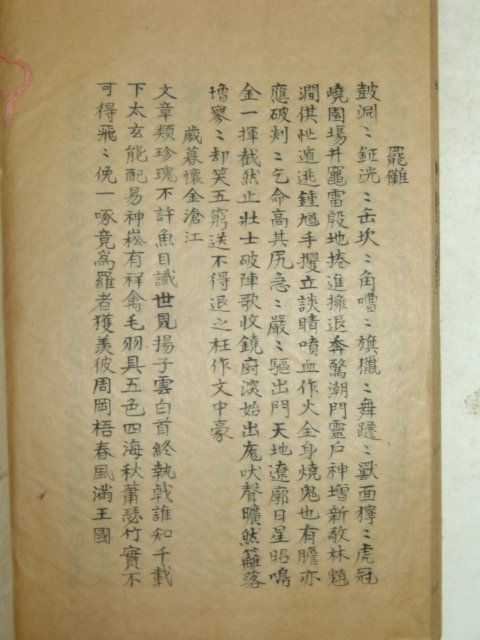 罷儺
鼓淵〻鉦洸〻缶坎〻角嘈〻旗獵〻舞躚〻獸面獰〻虎冠
嶢園塲井竈雷殷地捲進擁退奔驚潮門靈戶神增新敬林魑
澗供祉遁逃鍾馗手攫立談睛噴血作火全身燒鬼也有膽亦
應破刺〻乞命高其尻急〻嚴〻驅出門天地遼廓日星昭鳴
金一揮截然止壯士破陣歌收鐃廚淡始出尨吠聲曠然籬落
增寥〻却笑五窮送不得退之枉作文中豪
歲暮懷金滄江
文章類珍瑰不許魚目識世見揚子雲白首終執戟誰知千載
下太玄能配易神崧有祥禽毛羽具五色四海秋蕭瑟竹實不
可得飛〻俛一啄竟爲羅者獲羨彼周岡梧春風滿王國